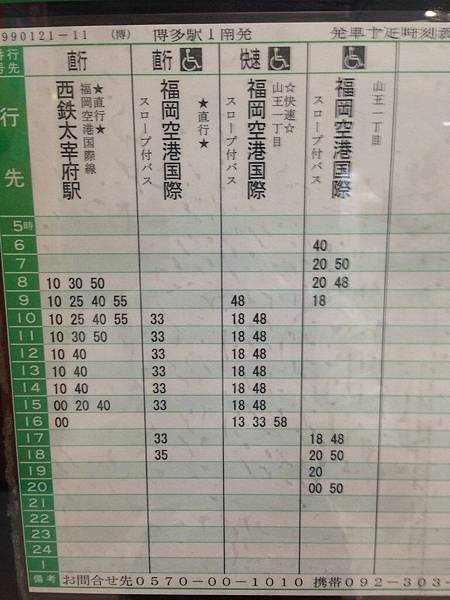 990121-11 (博) 博多駅1南発 発車予定時刻表
行 直行 直行 快速
号先
行先
西鉄太宰府駅
★直行★
福岡空港国際線
福岡空港国際
★直行★
スロープ付バス
福岡空港国際
☆快速☆
山王一丁目
スロープ付バス
福岡空港国際
山王一丁目
スロープ付バス
5時
6 40
7 20 50
8 10 30 50 20 48
9 10 25 40 55 48 18
10 10 25 40 55 33 18 48
11 10 30 50 33 18 48
12 10 40 33 18 48
13 10 40 33 18 48
14 10 40 33 18 48
15 00 20 40 33 18 48
16 00 13 33 58
17 33 18 48
18 35 20 50
19 20
20 00 50
21
22
23
24
1
備考 お問合せ先0570-00-1010 携帯092-303-